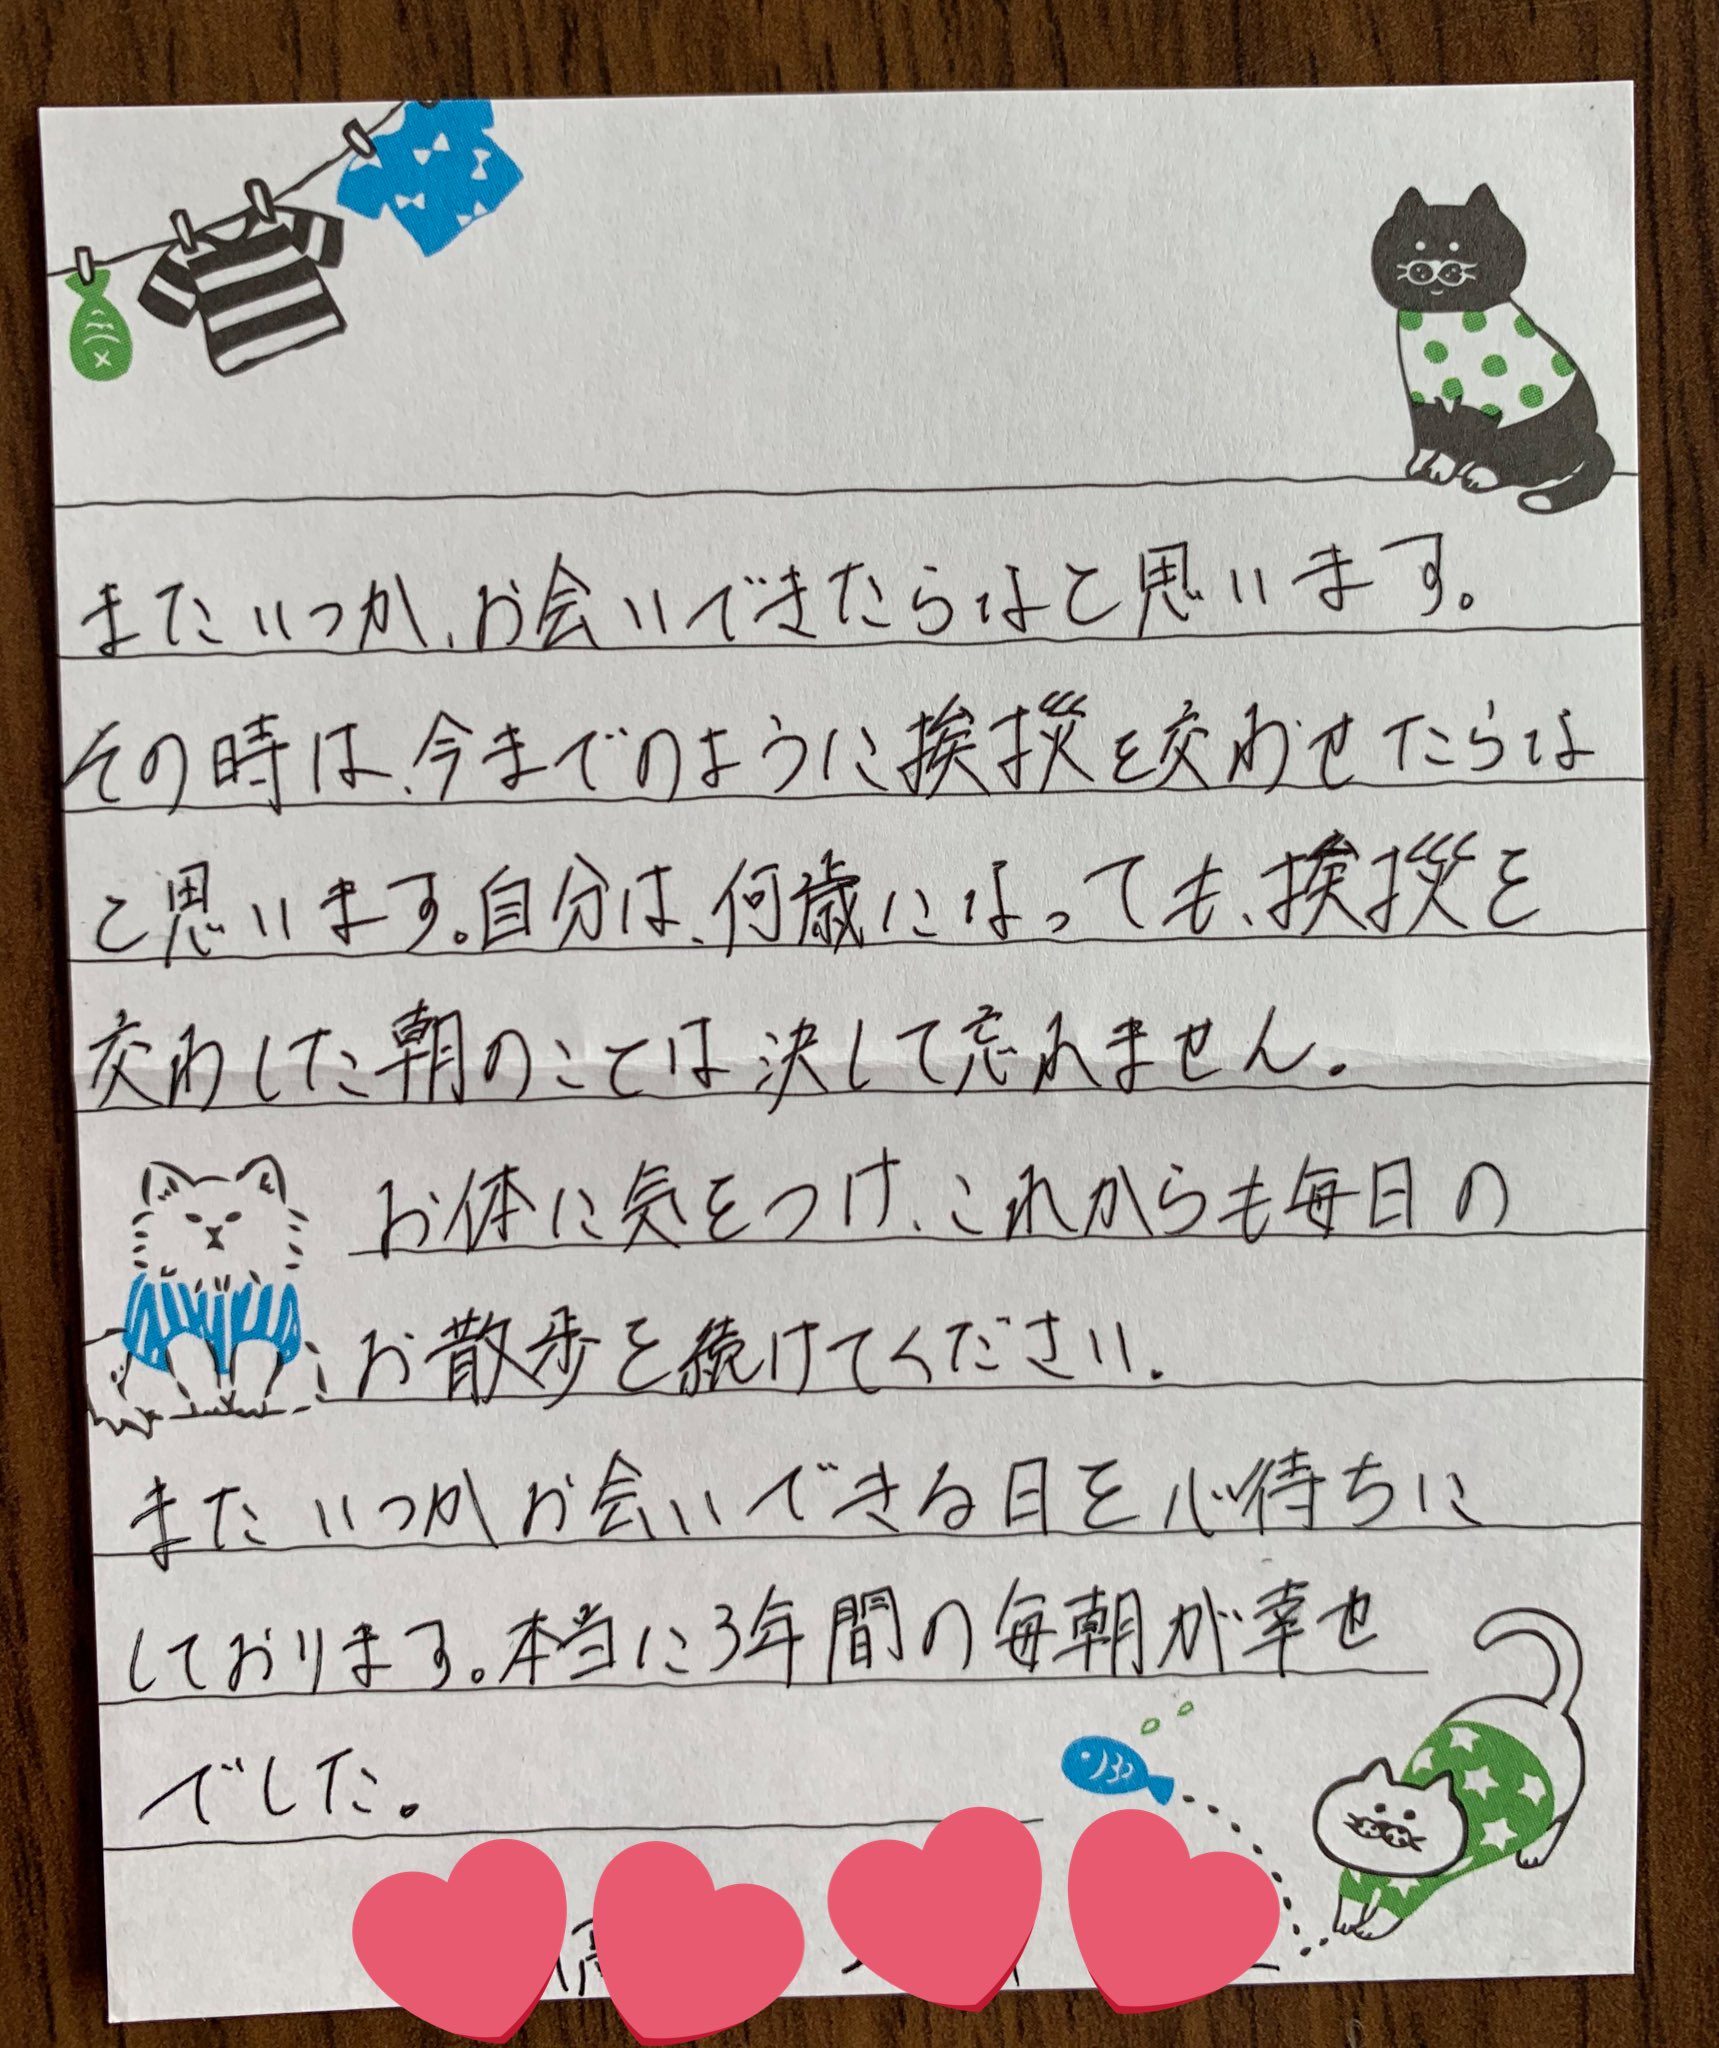 またいつか、お会いできたらなと思います。
その時は、今までのように挨拶を交わせたらな
と思います。自分は、何歳になっても、挨拶を
交わした朝のことは決して忘れません。
お体に気をつけ、これからも毎日の
お散歩を続けてください。
またいつかお会いできる日を心待ちに
しております。本当に3年間の毎朝が幸せ
でした。